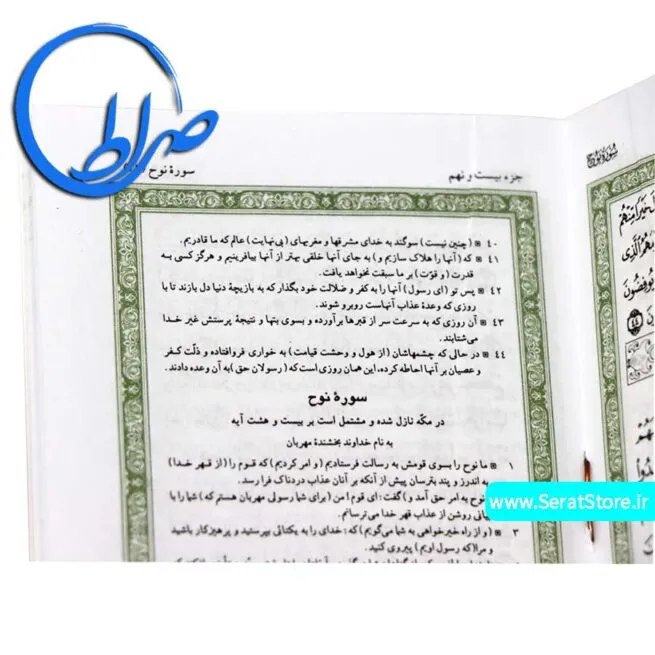 صراط
جزء بیست و نهم
سورهٔ نوح
۴۰ (چنین نیست) سوگند به خدای مشرقها و مغربهای (بی‌نهایت) عالم که ما قادریم.
۴۱ که (آنها را هلاک سازیم و) به جای آنها خلقی بهتر از آنها بیافرینیم و هرگز کسی به
قدرت (و قوّت) بر ما سبقت نخواهد یافت.
۴۲ پس تو (ای رسول) آنها را به کفر و ضلالت خود بگذار که به بازیچهٔ دنیا دل بازند تا با
روزی که وعدهٔ عذاب آنهاست روبرو شوند.
۴۳ آن روزی که به سرعت سر از قبرها برآورده و بسوی بتها و نتیجهٔ پرستش غیر خدا
می‌شتابند.
۴۴ در حالی که چشمهاشان (از هول و وحشت قیامت) به خواری فروافتاده و ذلّت کفر
و عصیان بر آنها احاطه کرده، این همان روزی است که (رسولان حق) به آن وعده دادند.
سورهٔ نوح
در مکّه نازل شده و مشتمل است بر بیست و هشت آیه
به نام خداوند بخشندهٔ مهربان
۱ ما نوح را بسوی قومش به رسالت فرستادیم (و امر کردیم) که قوم را (از قهر خدا)
به اندرز و پند بترسان پیش از آنکه بر آنان عذاب دردناک فرا رسد.
نوح به امر حق آمد و) گفت: ای قوم من (برای شما رسولی مهربان هستم که) شما را با
بیانی روشن از عذاب قهر خدا می‌ترسانم.
۳ (و از راه خیرخواهی به شما می‌گویم) که: خدای را به یکتائی بپرستید و پرهیزکار باشید
و مرا (که رسول اویم) پیروی کنید.
سورة نوح
خَيْرًا مِنْهُمْ
هُمُ الَّذِي
يُوفِضُونَ
٤٤
www.SeratStore.ir